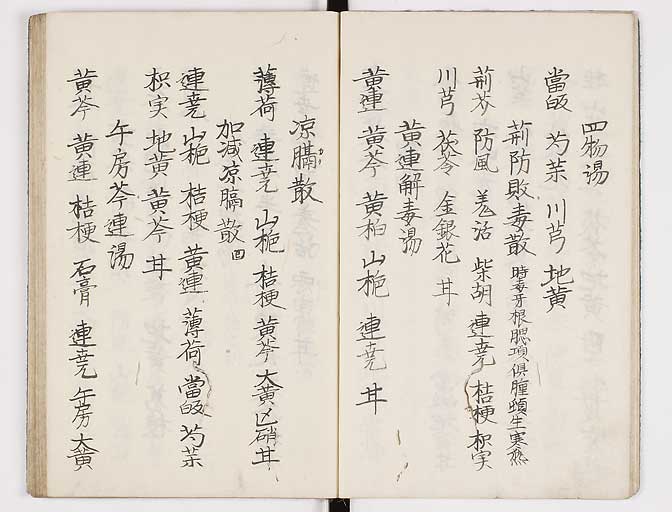 四物湯
當皈 芍薬 川芎 地黄
荊防敗毒散 時毒牙根腮項俱腫頭生寒熱
荊芥 防風 羌活 柴胡 連尭 桔梗 枳実
川芎 茯苓 金銀花 甘
黄連解毒湯
黄連 黄芩 黄柏 山梔 連尭 甘
凉膈散
薄荷 連尭 山梔 桔梗 黄芩 大黄 芒硝 甘
加減凉膈散 回
連尭 山梔 桔梗 黄連 薄荷 當皈 芍薬
枳実 地黄 黄芩 甘
午房芩連湯
黄芩 黄連 桔梗 石膏 連尭 午房 大黄